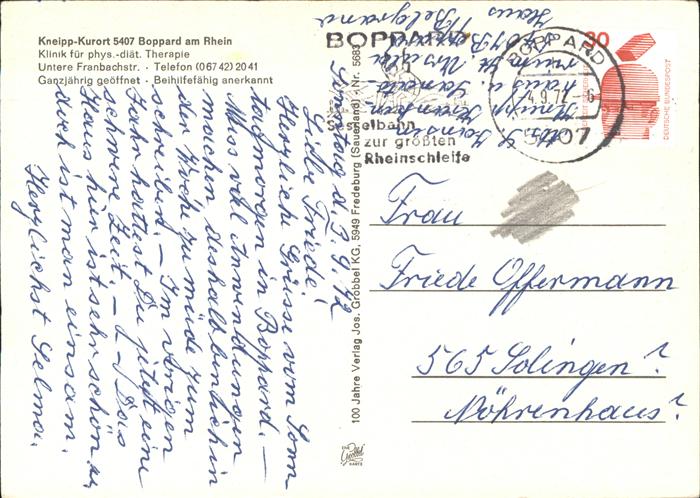 Kneipp-Kurort 5407 Boppard am Rhein
Klinik für phys.-diät. Therapie
Untere Franbachstr. · Telefon (06742) 2041
Ganzjährig geöffnet · Beihilfefähig anerkannt
Sonntag d. 3.9.72
Liebe Friede!
Herzliche Grüsse vom Sonn
tagmorgen in Boppard. —
Muss viel Anwendungen
machen deshalb bin ich in
der Woche zu müde zum
schreiben. — Im übrigen
Jahr hattest Du jetzt eine
schwere Zeit. — Das
Haus hier ist sehr schön u.
doch ist man einsam.
Herzlichst Selma.
100 Jahre Verlag Jos. Grobbel KG, 5949 Fredeburg (Sauerland) · Nr. 5683
Haus Belgrano
BOPPARD
Sesselbahn
zur größten
Rheinschleife
BOPPARD
5407
30
DEUTSCHE BUNDESPOST
Frau
Friede Offermann
565 Solingen?
Nöhrenhaus?
DIE
Grobbel
KARTE